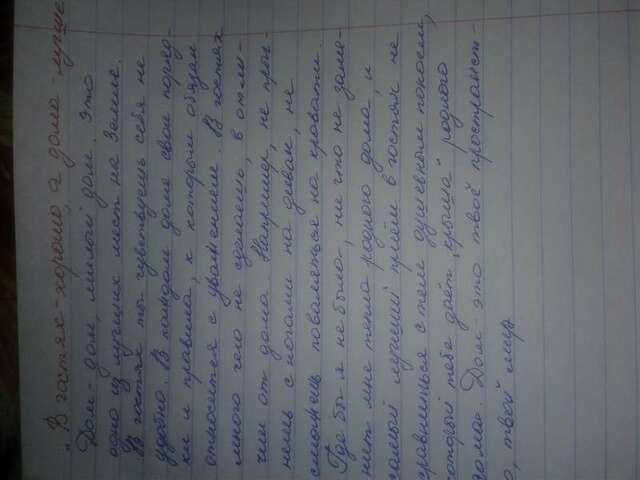 „В гостях - хорошо, а дома - лучше
Дом - дом, милый дом. Это
одно из лучших мест на Земле.
В гостях ты чувствуешь себя не
удобно. В каждом доме свои поряд-
ки и правила, к которым обязан
относится с уважением. В гостях
много чего не сделаешь, в отли-
чии от дома. Например, не пры-
нешь с ногами на диван, не
сможешь поваляться на кровати.
Где бы я не была, ни что не заме-
нит мне тепла родного дома, и
самый лучший приём в гостях не
сравниться с тем душевным покоем,
который тебе даёт „крыша" родного
дома. Дом - это твоё пространст-
о, твой мир